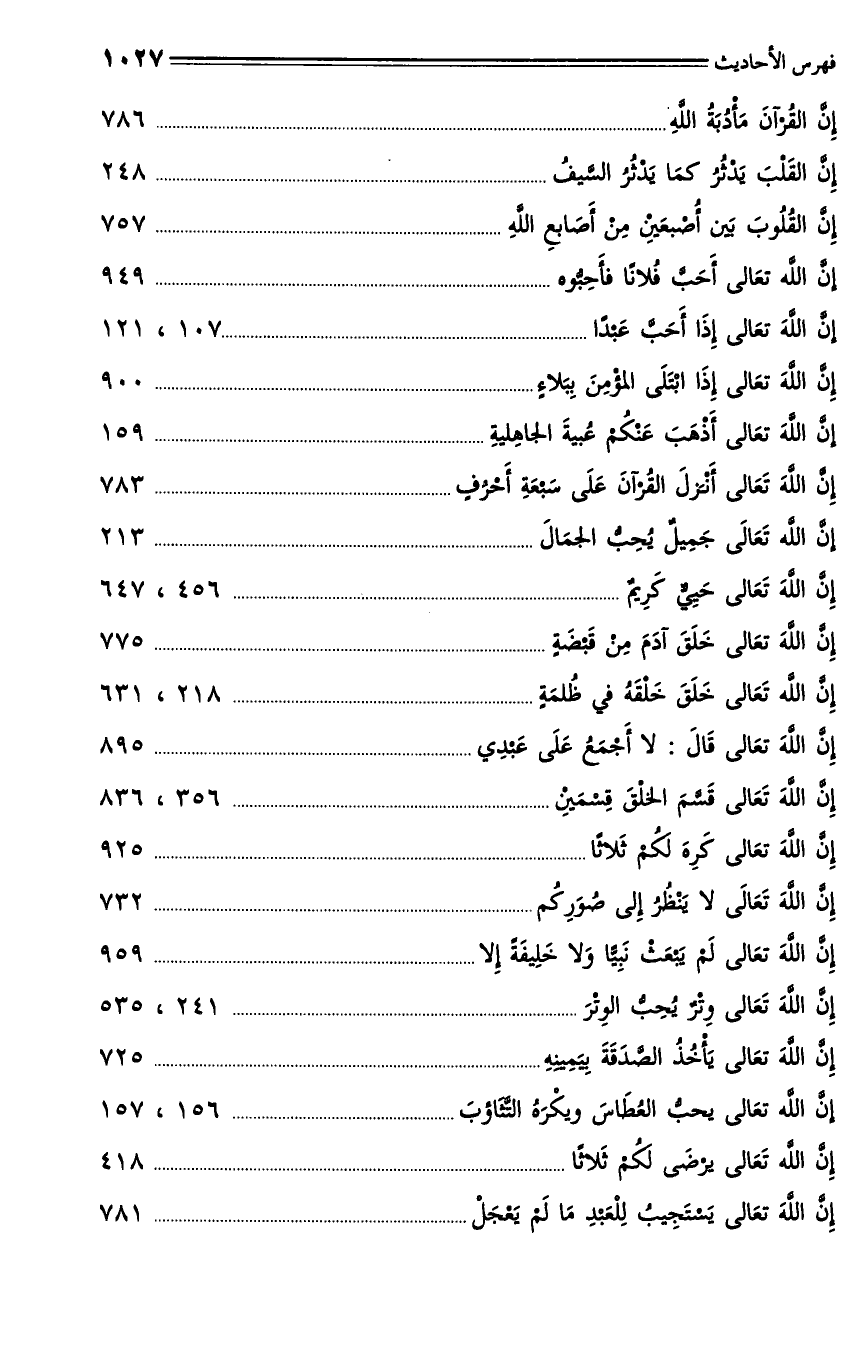 فهرس الأحاديث ١٠٢٧
إِنَّ القُرْآنَ مَأْدُبَةُ اللَّهِ ٧٨٦
إِنَّ القَلْبَ يَدْثُرُ كمَا يَدْثُرُ السَّيفُ ٢٤٨
إِنَّ القُلُوبَ بَين أُصْبعَيْنِ مِنْ أَصَابعِ اللَّهِ ٧٥٧
إنَّ اللَّه تعَالى أَحَبَّ فُلانًا فأَحِبُّوه ٩٤٩
إِنَّ اللَّهَ تعَالى إِذَا أَحَبَّ عَبْدًا ١٠٧ ، ١٢١
إِنَّ اللَّهَ تعَالى إِذَا ابْتَلَى المؤْمِنَ بِبَلاءٍ ٩٠٠
إنَّ اللَّهَ تعَالى أَذْهَبَ عَنْكُمْ عُبيةَ الجاهِليةِ ١٥٩
إِنَّ اللَّهَ تَعَالى أَنْزلَ القُرْآنَ عَلَى سَبْعَةِ أَحْرُفٍ ٧٨٣
إنَّ اللَّه تَعَالَى جَمِيلٌ يُحِبُّ الجمَالَ ٢١٣
إِنَّ اللَّهَ تَعَالى حَيِيٌّ كَرِيمٌ ٤٥٦ ، ٦٤٧
إِنَّ اللَّهَ تعَالى خَلَقَ آدَمَ مِنْ قَبْضَةٍ ٧٧٥
إِنَّ اللَّه تَعَالى خَلَقَ خَلْقَهُ في ظُلمَةٍ ٢١٨ ، ٦٣١
إِنَّ اللَّهَ تعَالى قَالَ : لا أَجْمَعُ عَلَى عَبْدِي ٨٩٥
إِنَّ اللَّهَ تَعَالى قَسَّمَ الخلْقَ قِسْمَيْنِ ٣٥٦ ، ٨٣٦
إِنَّ اللَّهَ تعَالى كَرِهَ لَكُمْ ثَلاثًا ٩٢٥
إِنَّ اللَّهَ تَعَالَى لا يَنْظُرُ إلى صُوَرِكُم ٧٣٢
إِنَّ اللَّهَ تعَالى لَمْ يَبْعَثْ نَبِيًّا وَلا خَلِيفَةً إلا ٩٥٩
إِنَّ اللَّهَ تَعَالى وِتْرٌ يُحِبُّ الوِتْرَ ٢٤١ ، ٥٣٥
إِنَّ اللَّهَ تعَالى يَأْخُذُ الصَّدَقَةَ بِيَمِينِهِ ٧٢٥
إنَّ اللَّه تعَالى يحبُّ العُطَاسَ ويكْرَهُ التَّثَاؤبَ ١٥٦ ، ١٥٧
إِنَّ اللَّه تَعَالى يرْضَى لَكُمْ ثَلاثًا ٤١٨
إِنَّ اللَّهَ تعَالى يَسْتَجِيبُ لِلْعَبْدِ مَا لَمْ يَعْجَلْ ٧٨١